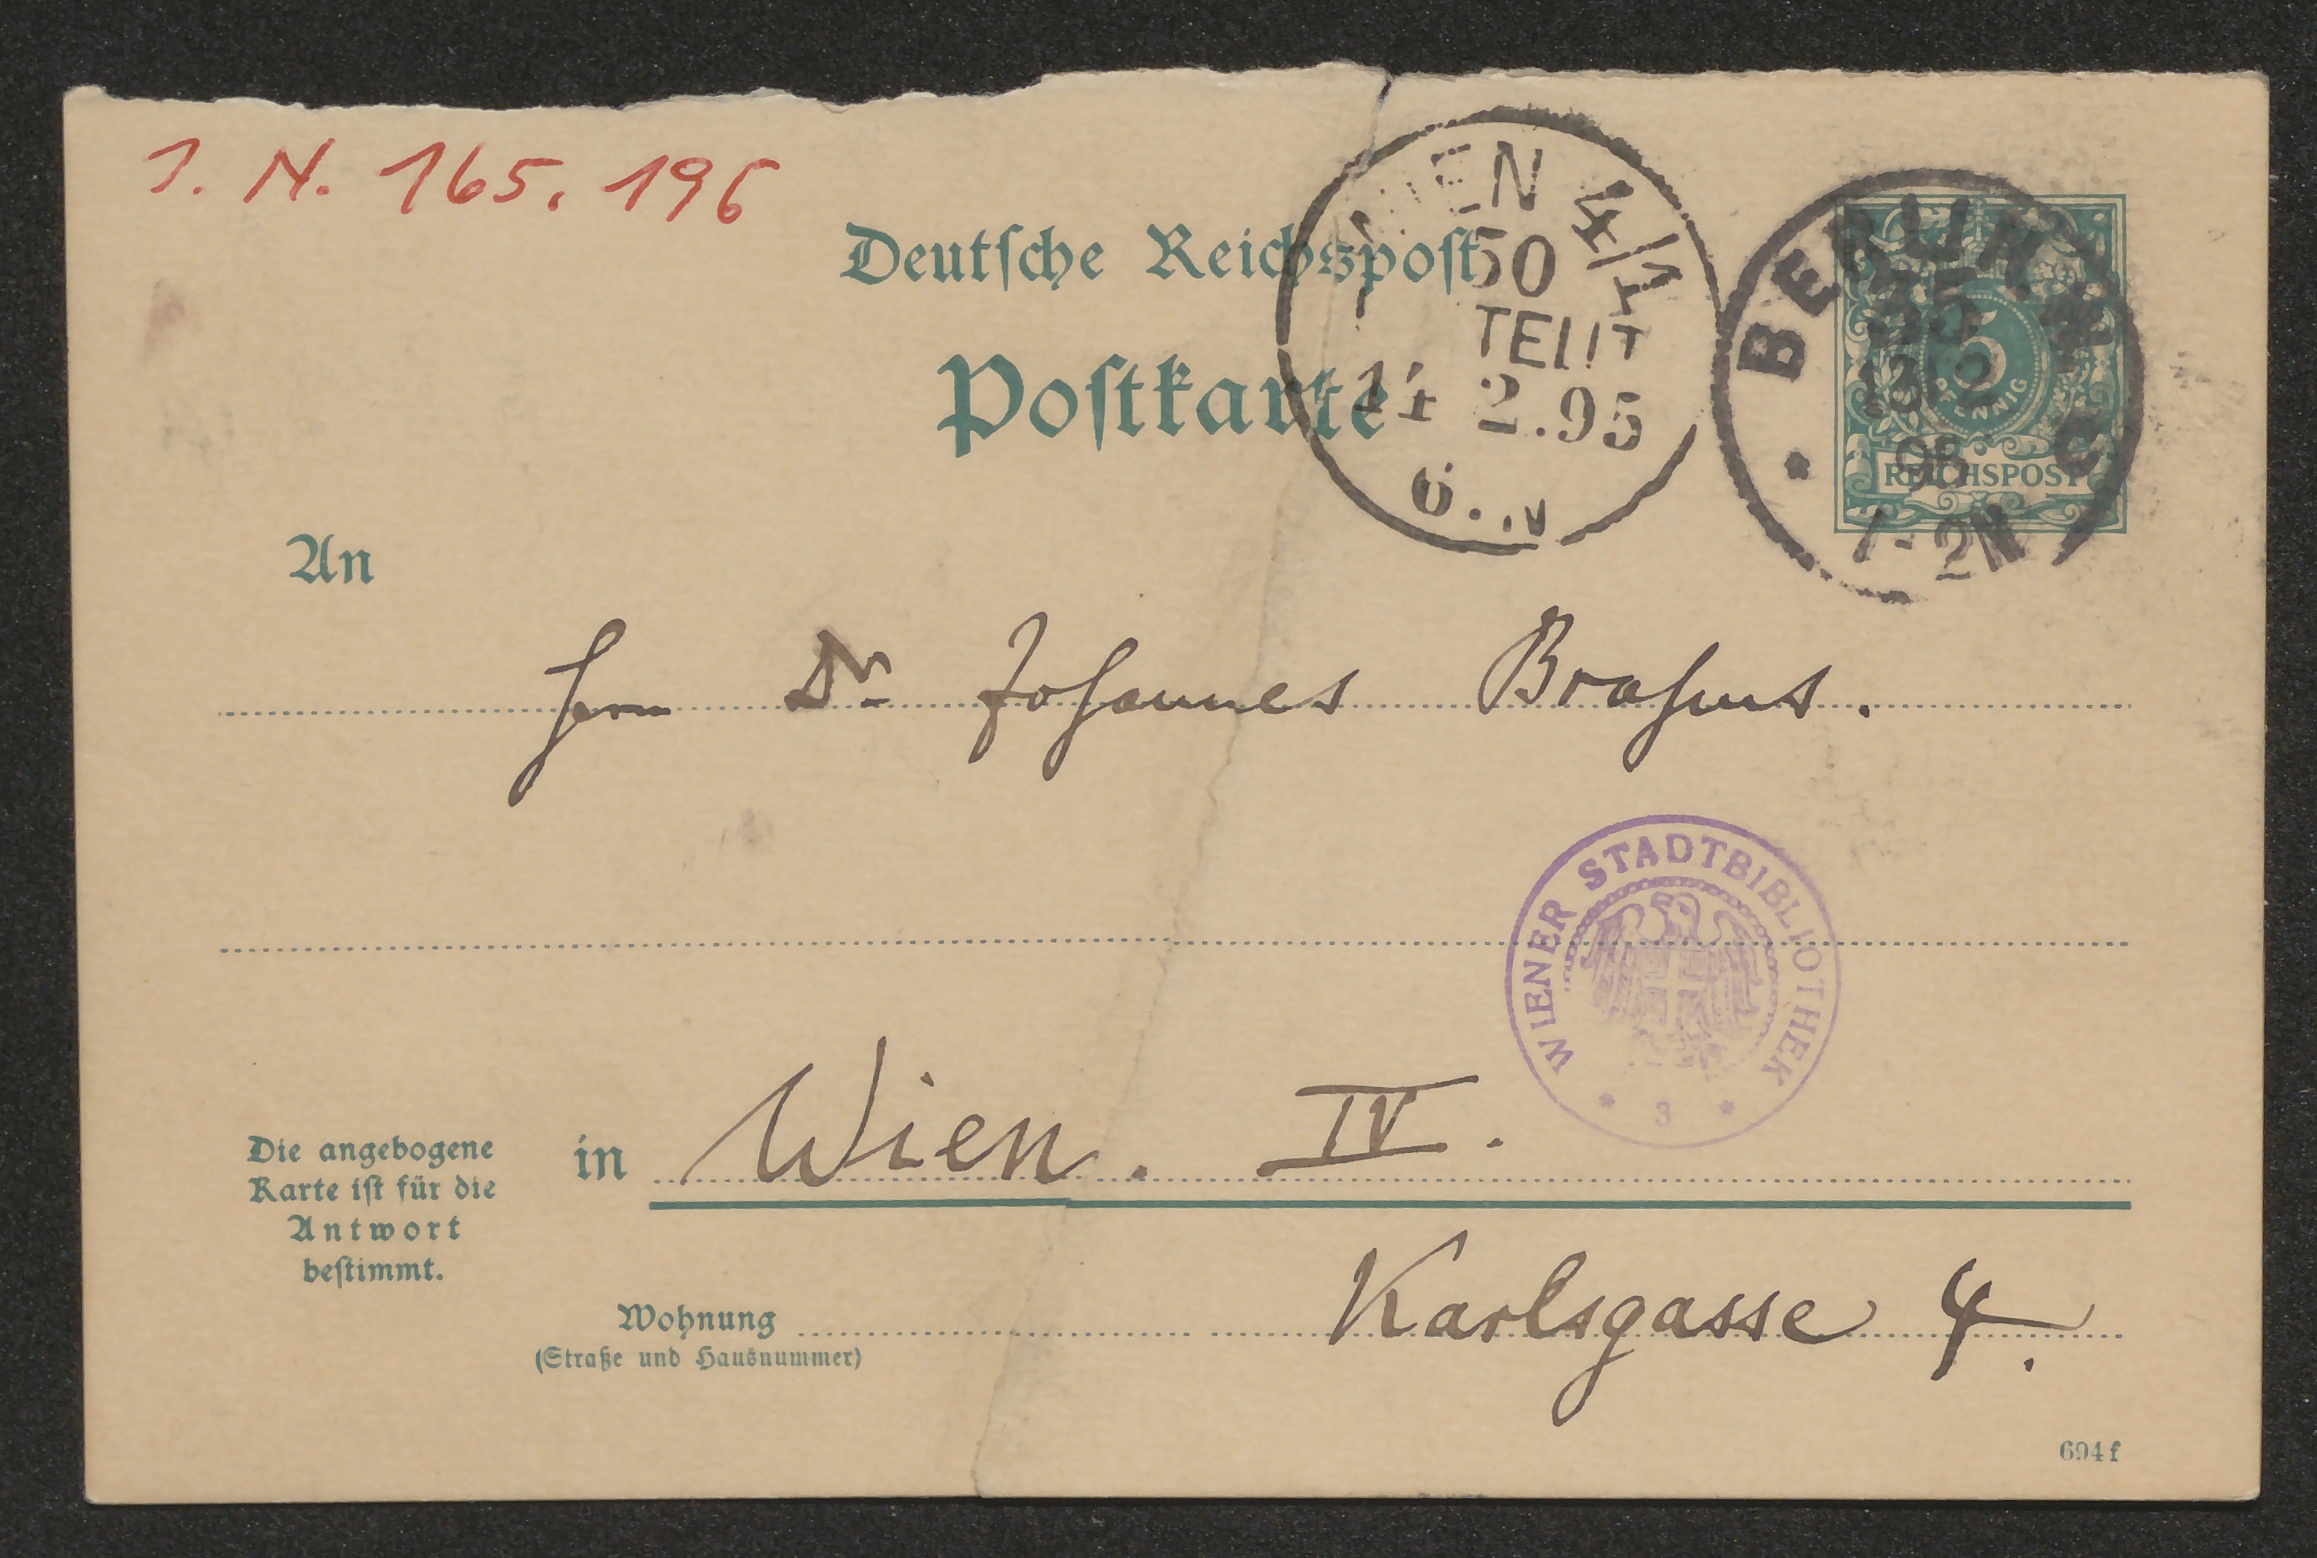 I. N. 165.196
Deutsche Reichspost
Postkarte
WIEN 4/1
50
14 2.95
BERLIN
35
13.2
95
1-2N
5
PFENNIG
REICHSPOST
An
Herrn Dr. Johannes Brahms.
WIENER STADTBIBLIOTHEK
* 3 *
in Wien. IV.
Die angebogene
Karte ist für die
Antwort
bestimmt.
Wohnung Karlsgasse 4.
(Straße und Hausnummer)
694f